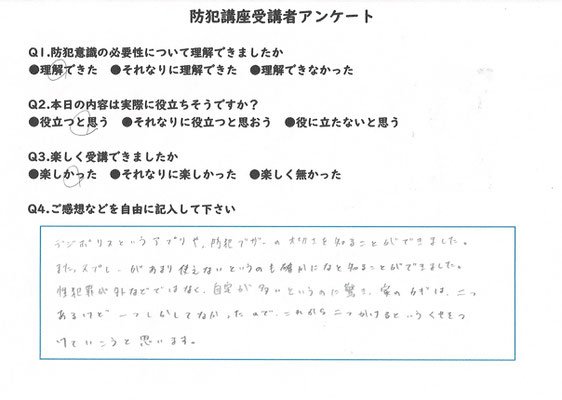 防犯講座受講者アンケート
Q1.防犯意識の必要性について理解できましたか
●理解できた ●それなりに理解できた ●理解できなかった
Q2.本日の内容は実際に役立ちそうですか？
●役立つと思う ●それなりに役立つと思おう ●役に立たないと思う
Q3.楽しく受講できましたか
●楽しかった ●それなりに楽しかった ●楽しく無かった
Q4.ご感想などを自由に記入して下さい
デジポリスというアプリや、防犯ブザーの大切さを知ることができました。
また、スプレーがあまり使えないというのも確かになと知ることができました。
性犯罪が外などではなく、自宅が多いというのに驚き、家のカギは、二つ
あるけど一つしかしてなかったので、これから二つかけるというくせをつ
けていこうと思います。